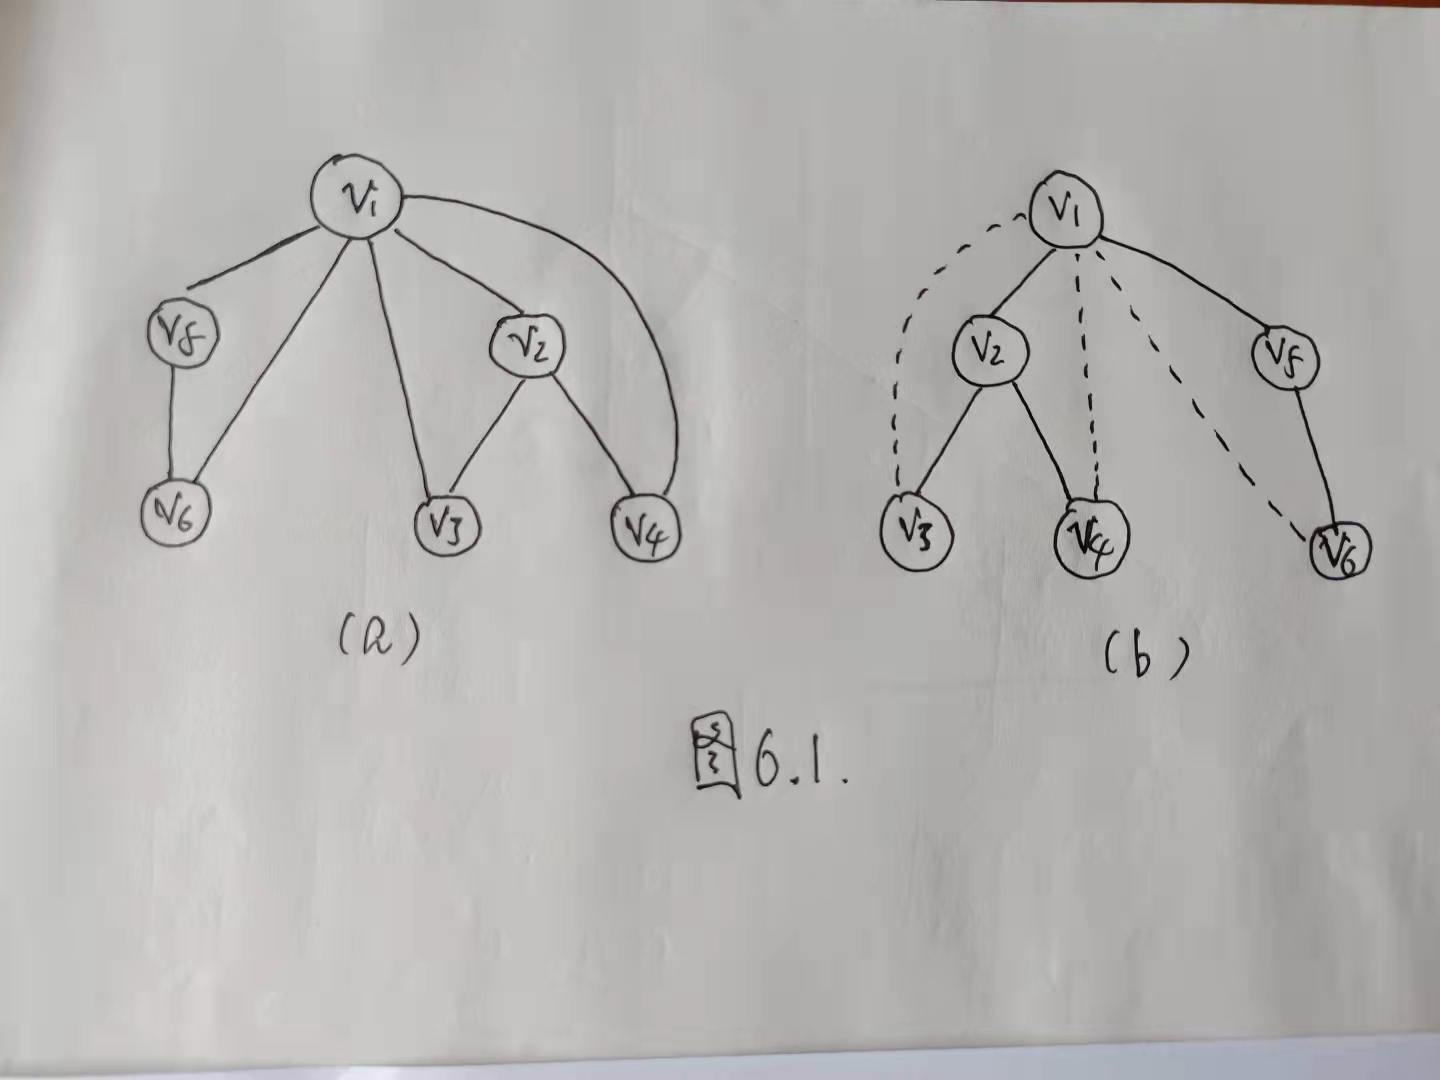 V1
V5 V2
V6 V3 V4
(a)
V1
V2 V5
V3 V4 V6
(b)
图6.1.